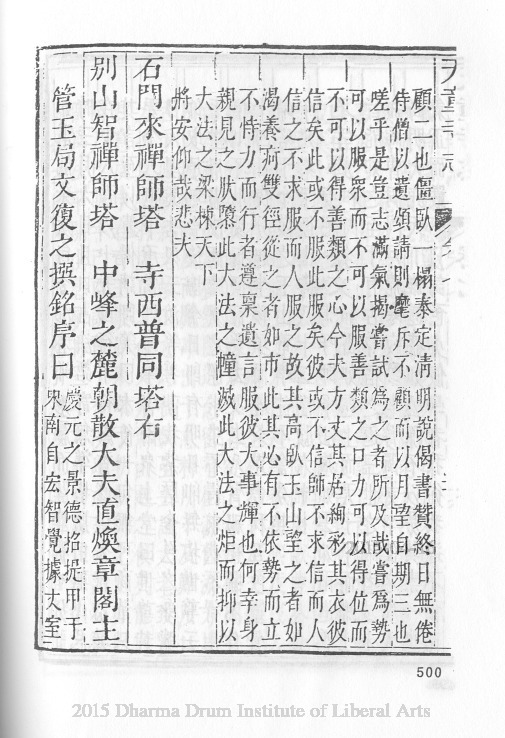 天童寺志
顧二也僵臥一榻泰定淸明說偈書贊終日無倦
侍僧以遺頌請則麾斥不顧而以月望自期三也
嗟乎是豈志滿氣揭嘗試爲之者所及哉嘗爲勢
可以服衆而不可以服善類之口力可以得位而
不可以得善類之心今夫方丈其居絢彩其衣彼
信矣此或不服此服矣彼或不信師不求信而人
信之不求服而人服之故其高臥玉山望之者如
渴養疴雙徑從之者如市此其必有不依勢而立
不恃力而行者遵稟遺言服彼大事輝也何幸身
親見之肰㬥此大法之撞滅此大法之炬而抑以
大法之梁棟天下
將安仰哉悲夫
石門來禪師塔 寺西普同塔右
別山智禪師塔 中峰之麓朝散大夫直煥章閣主
管玉局文復之撰銘序曰 慶元之景德招提甲于
東南自宏智覺據丈室
500
2015 Dharma Drum Institute of Liberal Arts